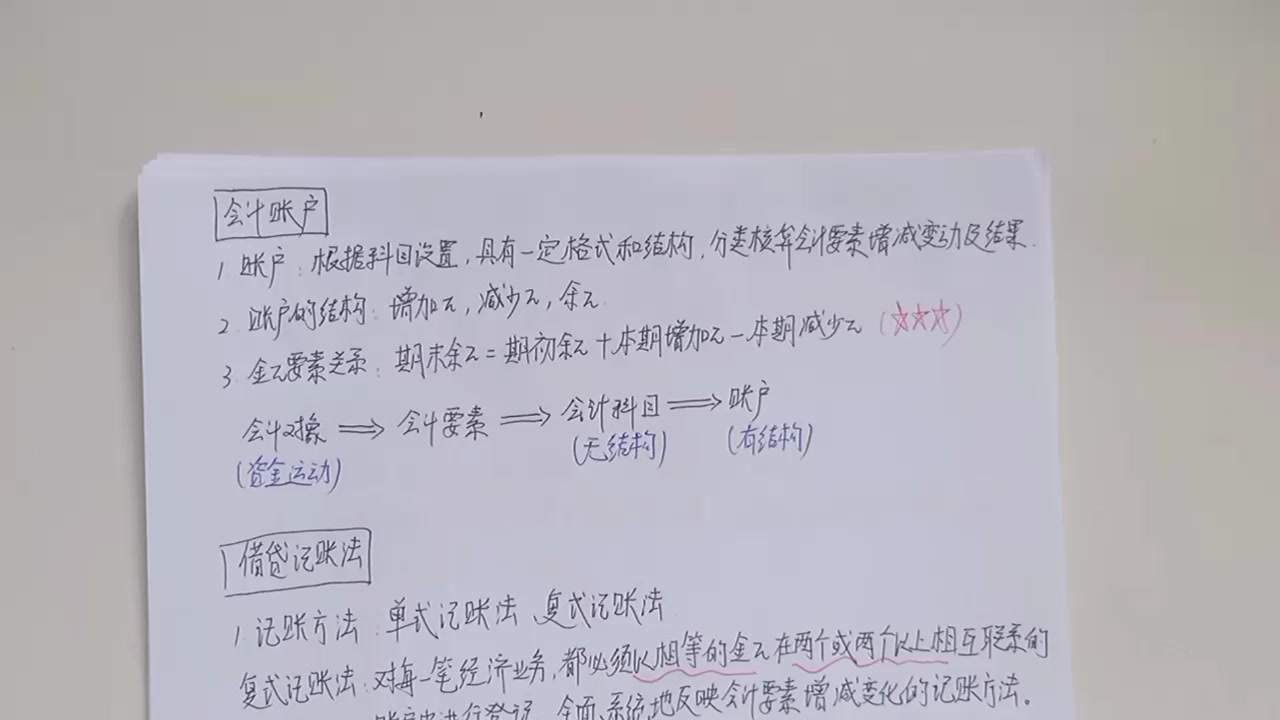 会计账户
1. 账户：根据科目设置，具有一定格式和结构，分类核算会计要素增减变动及结果.
2. 账户的结构：增加元，减少元，余元.
3. 金元要素关系：期末余元=期初余元+本期增加元-本期减少元（☆☆☆）
会计对象 ⟹ 会计要素 ⟹ 会计科目 ⟹ 账户
(资金运动) (无结构) (有结构)
借贷记账法
1. 记账方法：单式记账法、复式记账法
复式记账法：对每一笔经济业务，都必须以相等的金元在两个或两个以上相互联系的
账户中进行登记，全面、系统地反映会计要素增减变化的记账方法。